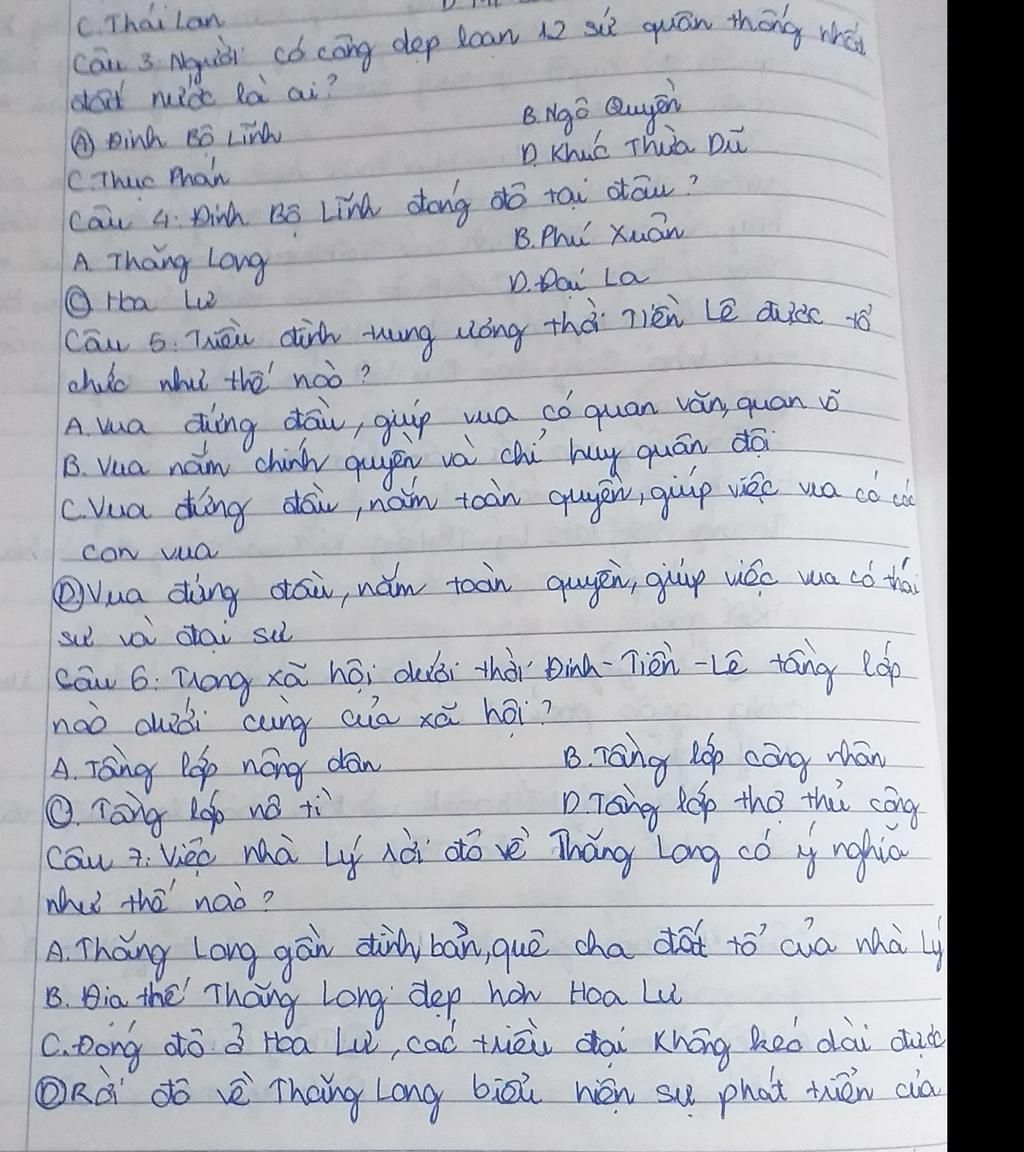 C. Thái Lan
Câu 3. Người có công dẹp loạn 12 sứ quân thống nhất
đất nước là ai?
A Đinh Bộ Lĩnh B. Ngô Quyền
C. Thục Phán D. Khúc Thừa Dũ
Câu 4: Đinh Bộ Lĩnh đóng đô tại đâu?
A. Thăng Long B. Phú Xuân
C Hoa Lư D. Đại La
Câu 5: Triều đình trung ương thời Tiền Lê được tổ
chức như thế nào?
A. Vua đứng đầu, giúp vua có quan văn, quan võ
B. Vua nắm chính quyền và chỉ huy quân đội
C. Vua đứng đầu, nắm toàn quyền, giúp việc vua có các
con vua
D Vua đứng đầu, nắm toàn quyền, giúp việc vua có thái
sư và đại sư
Câu 6: Trong xã hội dưới thời Đinh - Tiền - Lê tầng lớp
nào dưới cùng của xã hội?
A. Tầng lớp nông dân B. Tầng lớp công nhân
C. Tầng lớp nô tì D. Tầng lớp thợ thủ công
Câu 7: Việc nhà Lý dời đô về Thăng Long có ý nghĩa
như thế nào?
A. Thăng Long gần đình bản, quê cha đất tổ của nhà Lý
B. Địa thế Thăng Long đẹp hơn Hoa Lư
C. Đóng đô ở Hoa Lư, các triều đại không kéo dài được
D Rời đô về Thăng Long biểu hiện sự phát triển của